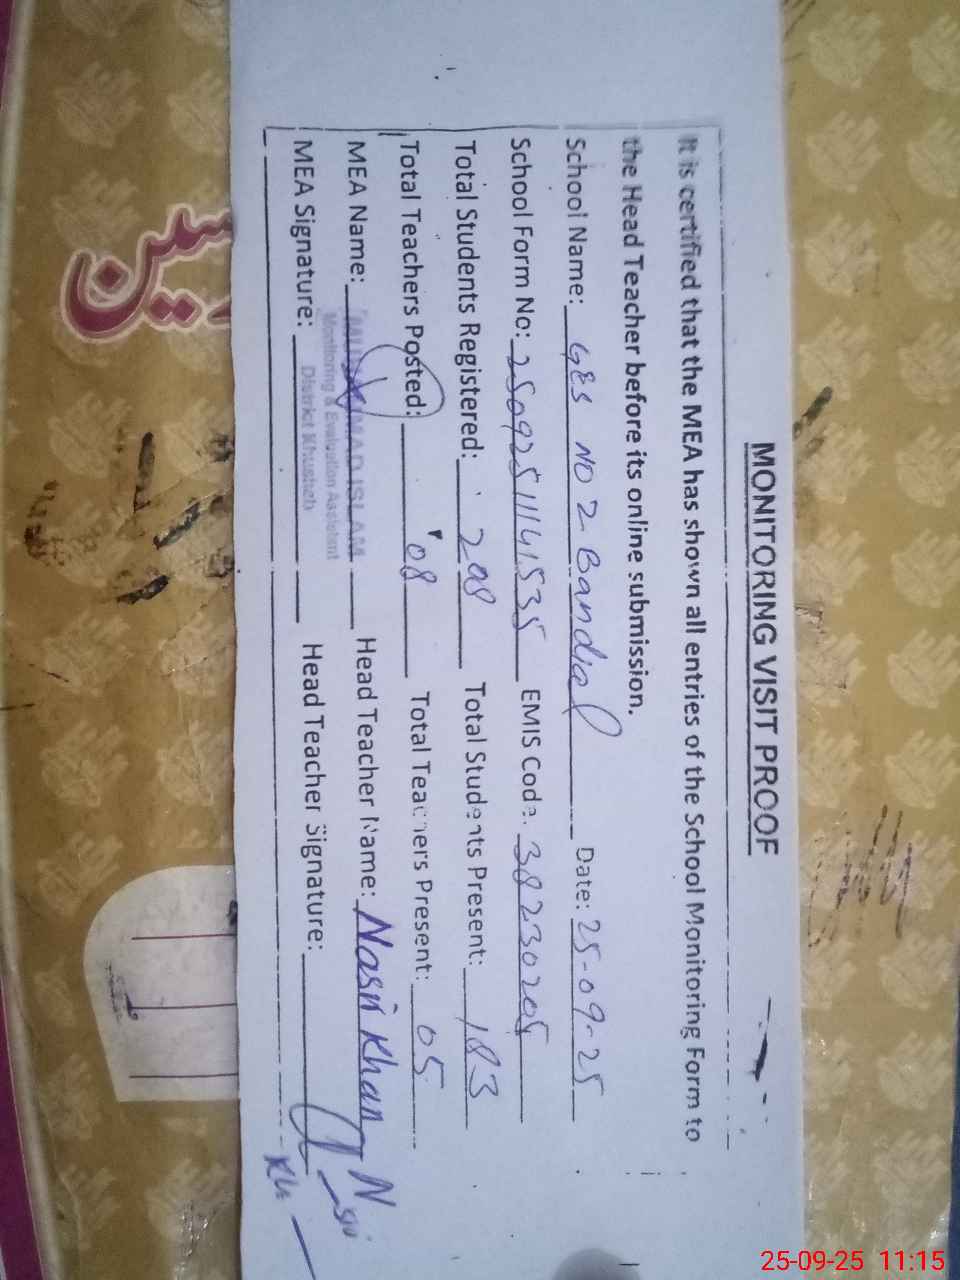 MONITORING VISIT PROOF
It is certified that the MEA has shown all entries of the School Monitoring Form to
the Head Teacher before its online submission.
School Name: GES NO 2 Bandial Date: 25-09-25
School Form No: 25092511141535 EMIS Code. 38230205
Total Students Registered: 208 Total Students Present: 183
Total Teachers Posted: 08 Total Teachers Present: 05
MEA Name: MUHAMMAD ISLAM Head Teacher Name: Nasir Khan
Monitoring & Evaluation Assistant
District Khushab
MEA Signature: Head Teacher Signature:
25-09-25 11:15